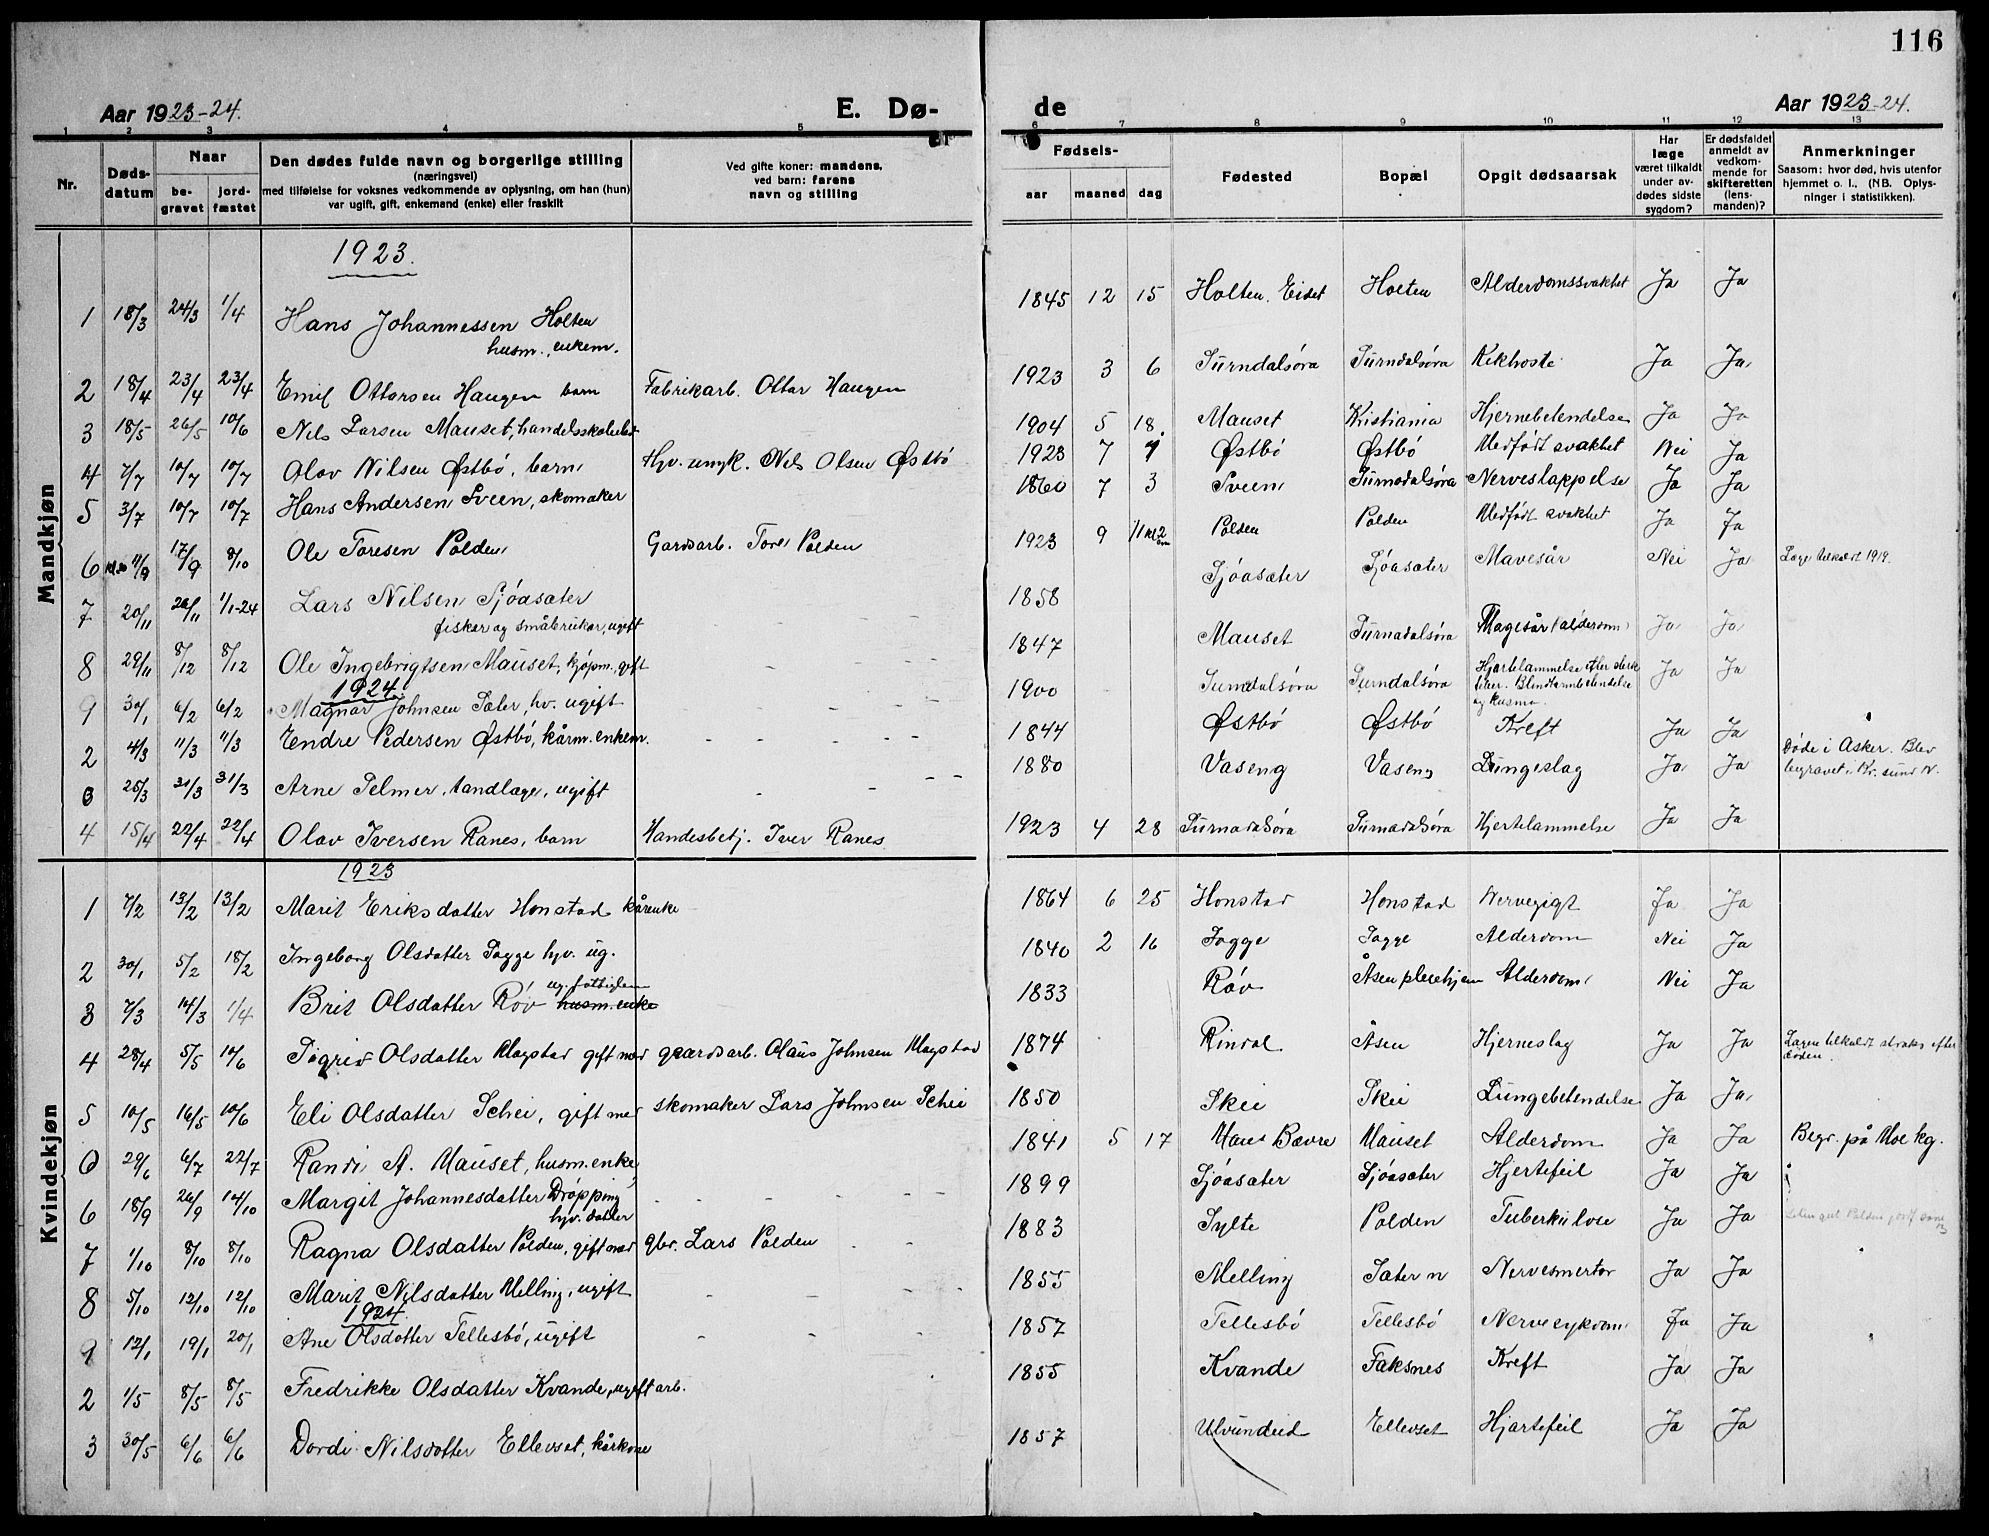 116
Aar 1923-24. E. Dø- de Aar 1923-24.
1 2 3 4 5 6 7 8 9 10 11 12 13
Nr.
Døds-
datum
Naar
be-
gravet
jord-
fæstet
Den dødes fulde navn og borgerlige stilling
(næringsvei)
med tilføielse for voksnes vedkommende av oplysning, om han (hun)
var ugift, gift, enkemand (enke) eller fraskilt
Ved gifte koner: mandens,
ved barn: farens
navn og stilling
Fødsels-
aar maaned dag
Fødested
Bopæl
Opgit dødsaarsak
Har
læge
været tilkaldt
under av-
dødes sidste
sygdom?
Er dødsfaldet
anmeldt av
vedkom-
mende for
skifteretten
(lens-
manden)?
Anmerkninger
Saasom: hvor død, hvis utenfor
hjemmet o. l., (NB. Oplys-
ninger i statistikken).
Mandkjøn
1923.
1 18/3 24/3 1/4 Hans Johannessen Holten 1845 12 15 Holten, Eidet Holten Alderdomssvakhet Ja Ja
husm., enkem.
2 18/4 23/4 23/4 Emil Ottarsen Haugen barn Fabrikarb. Ottar Haugen 1923 3 6 Surndalsøra Surndalsøra Kikhoste Ja Ja
3 18/5 26/5 10/6 Nils Larsen Mauset, 1904 5 18 Mauset Kristiania Hjernebetendelse Ja Ja
4 7/7 10/7 10/7 Olav Nilsen Østbö, barn Hjv. umyk. Nils Olsen Østbö 1923 7 Østbö Østbö Medfødt svakhet Nei Ja
5 3/7 10/7 10/7 Hans Andersen Sveen, skomaker 1860 7 3 Sveen Surnadalsøra Nerveslappelse Ja Ja
6 11/9 17/9 8/10 Ole Toresen Polden Gardsarb. Tore Polden 1923 9 11 Polden Polden Medfödt svakhet Ja Ja
7 20/11 26/11 1/1-24 Lars Nilsen Sjöasæter 1858 Sjöasæter Sjöasæter Mavesår Nei Ja Læge tilkaldt 1919.
fisker og småbruker, ugift
8 29/11 8/12 8/12 Ole Ingebrigtsen Mauset, kjöpm., gift 1847 Mauset Surnadalsøra Magesår (alderdom) Ja Ja
1924
9 30/1 6/2 6/2 Magnar Johnsen Sæter, hv. ugift 1900 Surndalsøra Surndalsøra Hjartelammelse efter
Blindtarmbetendelse
og kusma. Ja Ja
2 4/3 11/3 11/3 Endre Pedersen Østbö, kårm. enkem. 1844 Østbö Østbö Kreft Ja Ja
3 25/3 31/3 31/3 Arne Selmer, tandlæge, ugift 1880 Vaseng Vaseng Lungeslag Ja Ja Döde i Asker. Blev
begravet i Kr. sund N.
4 15/4 22/4 22/4 Olav Iversen Ranes, barn Handesbetj. Iver Ranes 1923 4 28 Surnadalsöra Surnadalsöra Hjertelammelse Ja Ja
Kvindekjøn
1923
1 7/2 13/2 13/2 Marit Eriksdatter Honstad kårenke 1864 6 25 Honstad Honstad Nervegigt Ja Ja
2 30/1 5/2 18/2 Ingeborg Olsdatter Sogge hjv. ug. 1840 2 16 Sogge Sogge Alderdom Nei Ja
ug. fattiglem
3 7/3 14/3 1/4 Brit Olsdatter Röv husm. enke 1833 Röv Åsen pleiehjem Alderdom Nei Ja
4 28/4 5/5 10/6 Sigrid Olsdatter Klagstad gift med gaardsarb. Olaus Johnsen Klagstad 1874 Rindal Åsen Hjerneslag Ja Ja Lægen tilkaldt straks efter
döden.
5 10/5 16/5 10/6 Eli Olsdatter Schei, gift med skomaker Lars Johnsen Schei 1850 Skei Skei Lungebetendelse Ja Ja
6 29/6 6/7 22/7 Randi A. Mauset, husm. enke 1841 5 17 Bævre Mauset Alderdom Ja Ja Begr. på Moe kg.
6 18/9 26/9 14/10 Margit Johannesdatter Dröpping 1899 Sjöasæter Sjöasæter Hjertefeil Ja Ja
hjv. datter
7 1/10 8/10 8/10 Ragna Olsdatter Polden, gift med gbr. Lars Polden 1883 Sylte Polden Tuberkulose Ja Ja
8 5/10 12/10 12/10 Marit Nilsdatter Melling, ugift 1855 Melling Sæter n Nervesmerter Ja Ja
1924.
9 12/1 19/1 20/1 Ane Olsdotter Tellesbö, ugift 1857 Tellesbö Tellesbö Nervesykdom Ja Ja
2 1/5 8/5 8/5 Fredrikke Olsdatter Kvande, ugift arb. 1855 Kvande Faksnes Kreft Ja Ja
3 30/5 6/6 6/6 Dordi Nilsdotter Ellevset, kårkone 1857 Ulvundeid Ellevset Hjartefeil Ja Ja